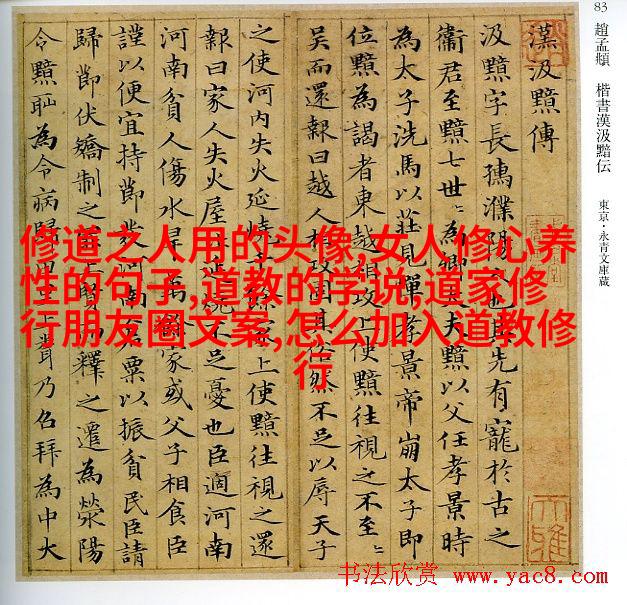 83
趙孟頫 楷書漢汲黯伝 東京・永青文庫蔵
漢汲黯傳
汲黯字長孺濮陽人也其先有寵於古之
衞君至黯七世〻為卿大夫黯以父任孝景時
為太子洗馬以莊見憚孝景帝崩太子即
位黯為謁者東越相攻上使黯往視之不至〻
吳而還報曰越人相攻固其俗然不足以辱天子
之使河内失火延燒千餘家上使黯往視之還
報曰家人失火屋比延燒不足憂也臣適河南
河南貧人傷水旱萬餘家或父子相食臣
謹以便宜持節發河南倉粟以振貧民臣請
歸節伏矯制之罪上賢而釋之遷為滎陽
令黯恥為令病歸田里上聞乃召拜為中大
修道之人用的头像,女人修心养
性的句子,道教的学说,道家修
行朋友圈文案,怎么加入道教修
行
书法欣赏 www.yac8.com